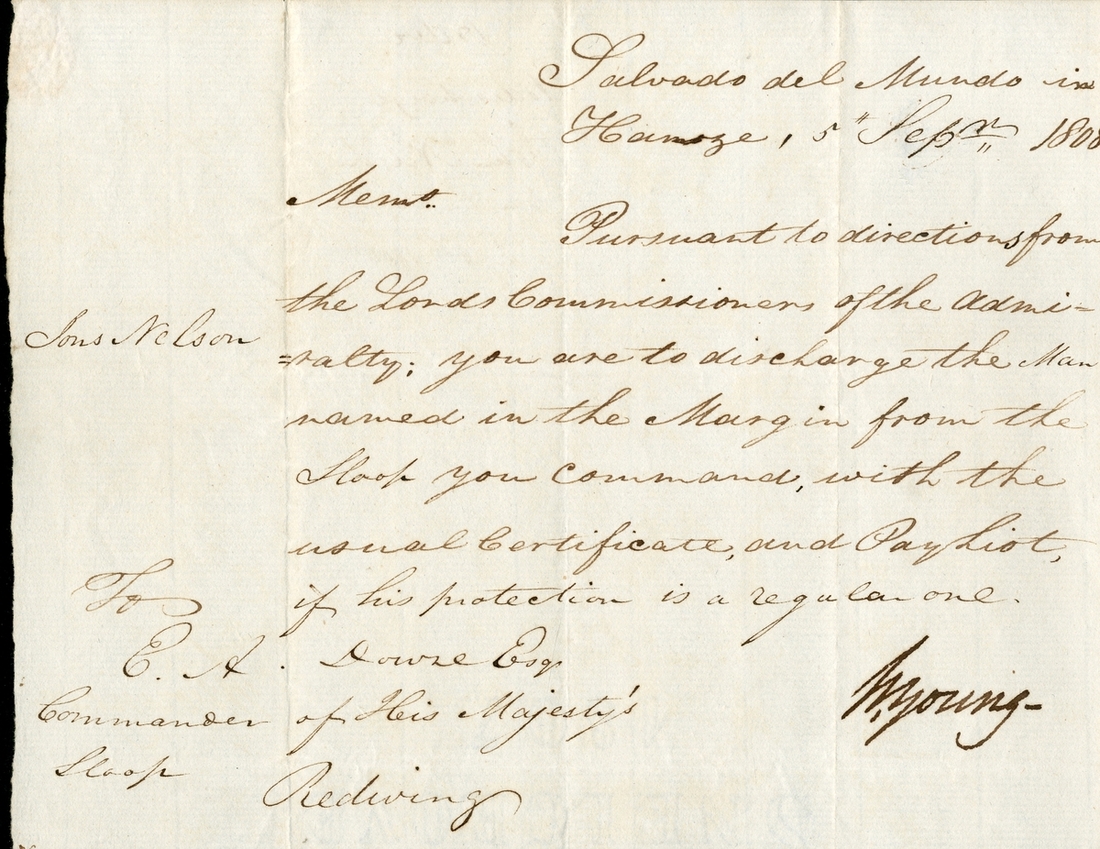 Salvado del Mundo in
Hamoze, 5th Sepr 1808
Memo.
Pursuant to directions from
the Lords Commissioners of the Admi-
Jons Nelson
=ralty; you are to discharge the Man
named in the Margin from the
Sloop you command, with the
usual Certificate, and Pay List,
if his protection is a regular one.
To
E. A. Downe Esqr
Commander of His Majesty's
Sloop Redwing
W. Young